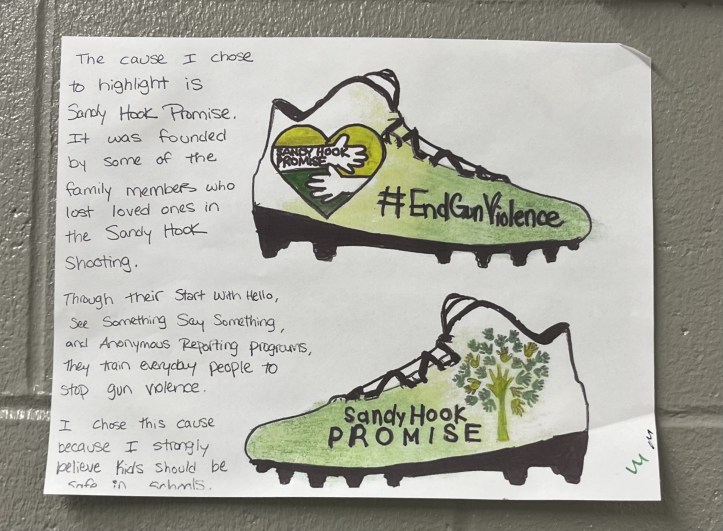 The cause I chose
to highlight is
Sandy Hook Promise.
It was founded
by some of the
family members who
lost loved ones in
the Sandy Hook
Shooting.
Through their Start With Hello,
See Something Say Something,
and Anonymous Reporting programs,
they train everyday people to
stop gun violence.
I chose this cause
because I strongly
believe kids should be
safe in schools.
SANDY HOOK
PROMISE
#EndGunViolence
Sandy Hook
PROMISE